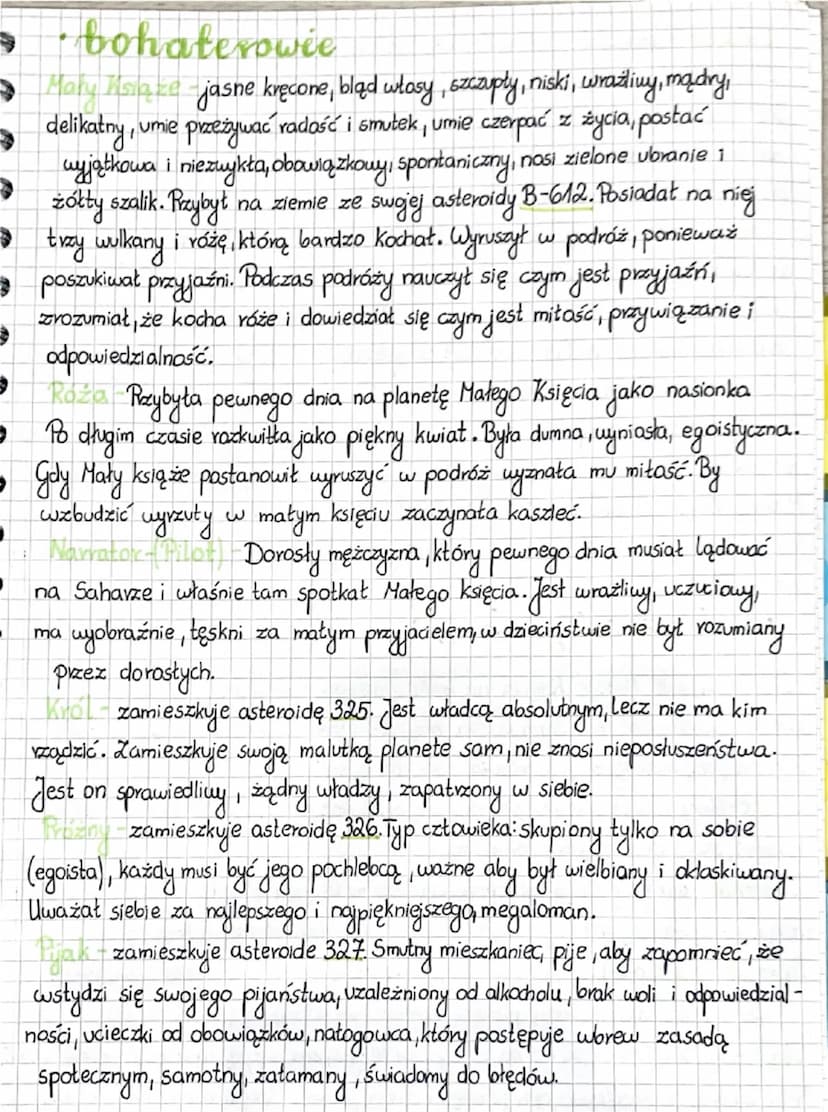 • bohaterowie
Mały Książe - jasne kręcone, bląd włosy, szczupły, niski, wrażliwy, mądry,
delikatny, umie przeżywać radość i smutek, umie czerpać z życia, postać
wyjątkowa i niezwykła, obowiązkowy, spontaniczny, nosi zielone ubranie i
żółty szalik. Przybył na ziemie ze swojej asteroidy B-612. Posiadał na niej
trzy wulkany i różę, którą bardzo kochał. Wyruszył w podróż, ponieważ
poszukiwał przyjaźni. Podczas podróży nauczył się czym jest przyjaźń,
zrozumiał, że kocha róże i dowiedział się czym jest miłość, przywiązanie i
odpowiedzialność.
Róża - Przybyła pewnego dnia na planetę Małego Księcia jako nasionka
Po długim czasie rozkwitła jako piękny kwiat. Była dumna, wyniosła, egoistyczna.
Gdy Mały książe postanowił wyruszyć w podróż wyznała mu miłość. By
wzbudzić wyrzuty w małym księciu zaczynała kaszleć.
Narrator-(Pilot) - Dorosły mężczyzna, który pewnego dnia musiał lądować
na Saharze i właśnie tam spotkał Małego księcia. Jest wrażliwy, uczuciowy,
ma wyobraźnie, tęskni za małym przyjacielem, w dzieciństwie nie był rozumiany
przez dorosłych.
Król - zamieszkuje asteroidę 325. Jest władcą absolutnym, lecz nie ma kim
rządzić. Zamieszkuje swoją malutką planete sam, nie znosi nieposłuszeństwa.
Jest on sprawiedliwy, żądny władzy, zapatrzony w siebie.
Próżny - zamieszkuje asteroidę 326. Typ człowieka: skupiony tylko na sobie
(egoista), każdy musi być jego pochlebcą, ważne aby był wielbiany i oklaskiwany.
Uważał siebie za najlepszego i najpiękniejszego, megaloman.
Pijak - zamieszkuje asteroide 327. Smutny mieszkaniec, pije, aby zapomnieć, że
wstydzi się swojego pijaństwa, uzależniony od alkocholu, brak woli i odpowiedzial-
ności, ucieczki od obowiązków, nałogowca, który postępuje wbrew zasadą
społecznym, samotny, załamany, świadomy do błędów.